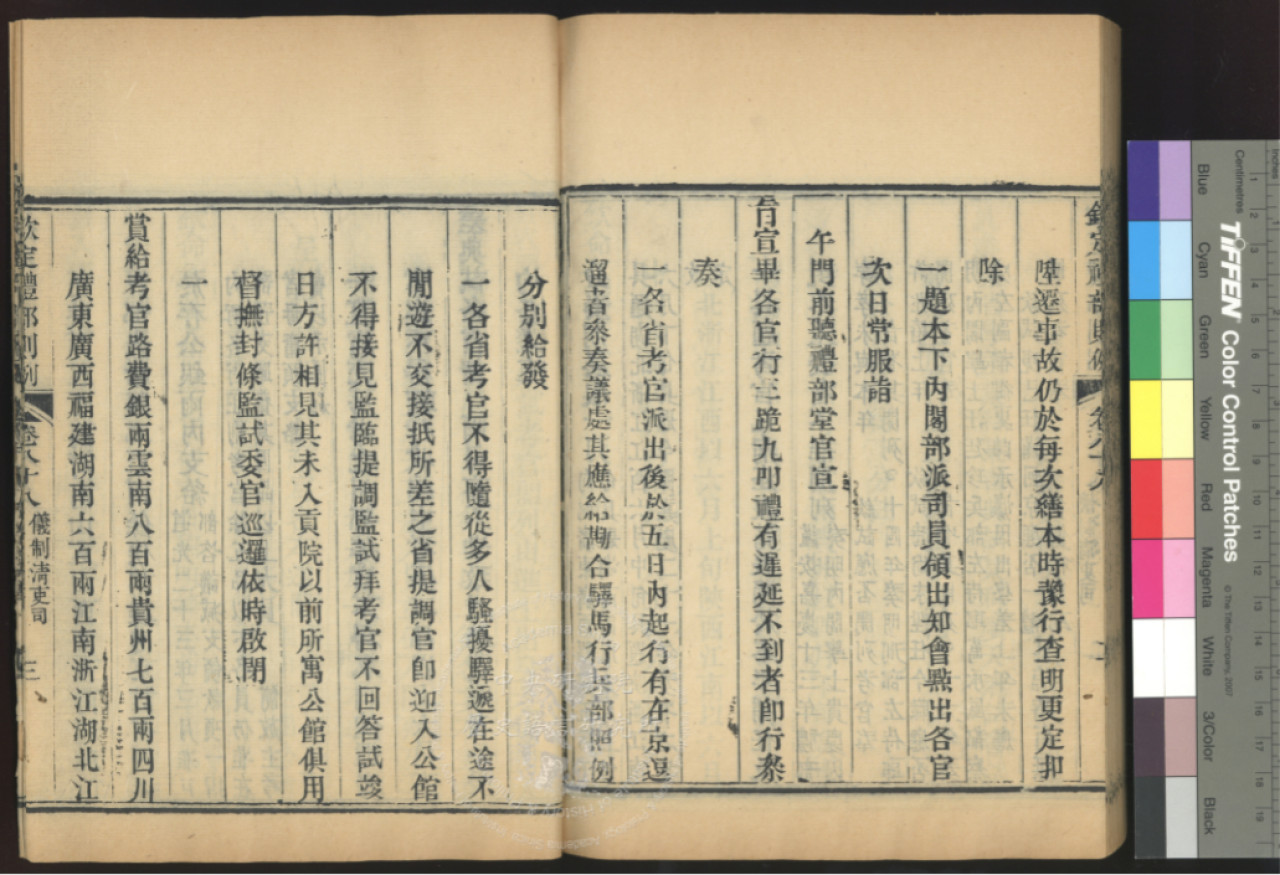 欽定禮部則例
卷八十八
二
陞遷事故仍於每次繕本時豫行查明更定扣
除
一題本下內閣部派司員領出知會點出各官
次日常服詣
午門前聽禮部堂官宣
旨宣畢各官行三跪九叩禮有遲延不到者即行叅
奏
一各省考官派出後於五日內起行有在京逗
遛者叅奏議處其應給勘合驛馬行兵部照例
分別給發
一各省考官不得隨從多人騷擾驛遞在途不
閒遊不交接抵所差之省提調官卽迎入公館
不得接見監臨提調監試拜考官不回答試竣
日方許相見其未入貢院以前所寓公館俱用
督撫封條監試委官巡邏依時啟閉
一
賞給考官路費銀兩雲南八百兩貴州七百兩四川
廣東廣西福建湖南六百兩江南浙江湖北江
欽定禮部則例
卷八十八
儀制清吏司
三
Centimetres
Inches
TIFFEN Color Control Patches
© The Tiffen Company, 2007
Blue
Cyan
Green
Yellow
Red
Magenta
White
3/Color
Black